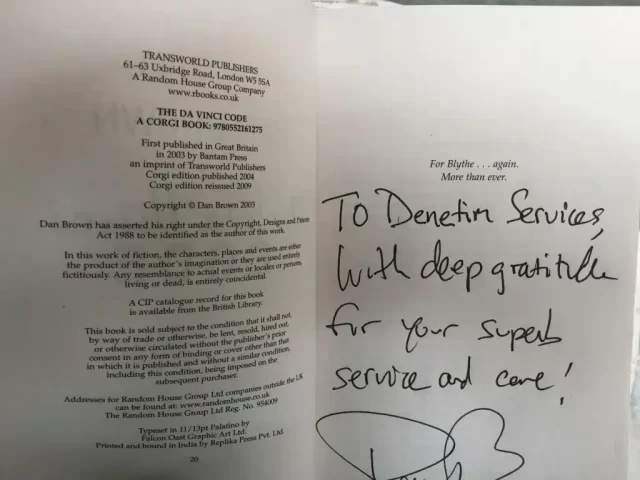 TRANSWORLD PUBLISHERS
61–63 Uxbridge Road, London W5 5SA
A Random House Group Company
www.rbooks.co.uk
THE DA VINCI CODE
A CORGI BOOK: 9780552161275
First published in Great Britain
in 2003 by Bantam Press
an imprint of Transworld Publishers
Corgi edition published 2004
Corgi edition reissued 2009
Copyright © Dan Brown 2003
Dan Brown has asserted his right under the Copyright, Designs and Patents
Act 1988 to be identified as the author of this work.
In this work of fiction, the characters, places and events are either
the product of the author's imagination or they are used entirely
fictitiously. Any resemblance to actual events or locales or persons,
living or dead, is entirely coincidental.
A CIP catalogue record for this book
is available from the British Library.
This book is sold subject to the condition that it shall not,
by way of trade or otherwise, be lent, resold, hired out,
or otherwise circulated without the publisher's prior
consent in any form of binding or cover other than that
in which it is published and without a similar condition,
including this condition, being imposed on the
subsequent purchaser.
Addresses for Random House Group Ltd companies outside the UK
can be found at: www.randomhouse.co.uk
The Random House Group Ltd Reg. No. 954009
Typeset in 11/13pt Palatino by
Falcon Oast Graphic Art Ltd.
Printed and bound in India by Replika Press Pvt. Ltd.
20
For Blythe . . . again.
More than ever.
To Denetim Services,
With deep gratitude
for your superb
service and care!